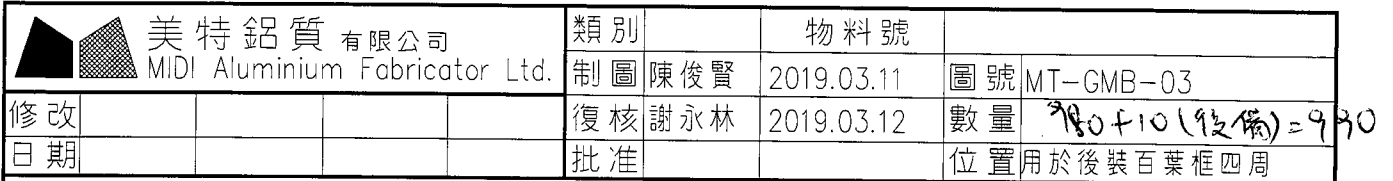 美特鋁質 有限公司
MIDI Aluminium Fabricator Ltd.
類別 物料號
制圖 陳俊賢 2019.03.11 圖號 MT-GMB-03
修改 復核 謝永林 2019.03.12 數量 980+10(後備)=990
日期 批准 位置 用於後裝百葉框四周